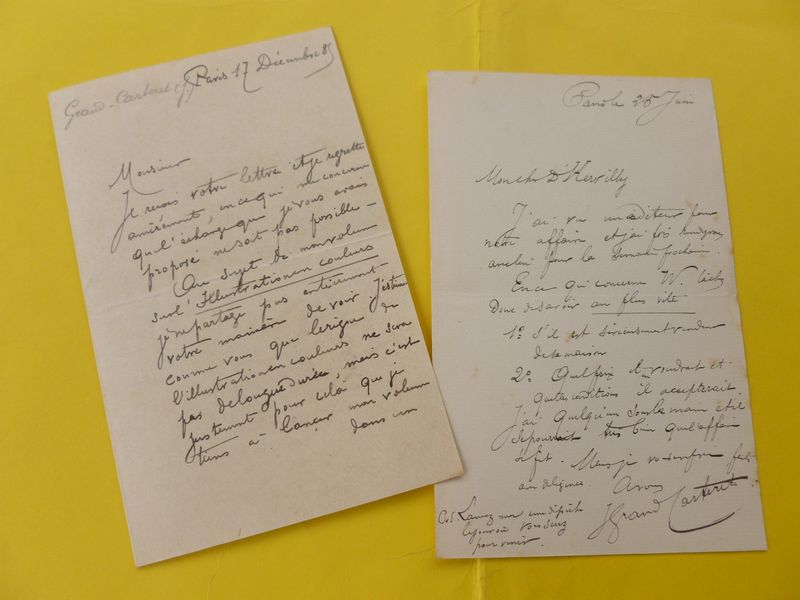 Grand-Carteret (J)
Paris 17 Décembre 85
Monsieur
Je reçois votre lettre et je regrette
amèrement, en ce qui me concerne
que l'échange que je vous avais
proposé ne soit pas possible -
Au sujet de mon volume
sur l'Illustration en couleurs
je ne partage pas entièrement
votre manière de voir. J'estime
comme vous que le règne de
l'illustration en couleurs ne sera
pas de longue durée, mais c'est
justement pour cela que je
tiens à lancer mon volume
dans un
Paris le 25 Juin
Mon cher D'Hervilly
J'ai vu un éditeur pour
notre affaire et j'ai pris rendez-vous
avec lui pour la semaine prochaine.
En ce qui concerne W. tâchez
donc de savoir au plus vite
1º S'il est sérieusement vendeur
de la maison
2º Quel prix il en voudrait et
quelles conditions il accepterait
J'ai quelqu'un sous la main et il
se pourrait très bien que l'affaire
se fit. Mais je vous en prie
diligence. A vous
J Grand Carteret
le jour où vous serez
pour venir.